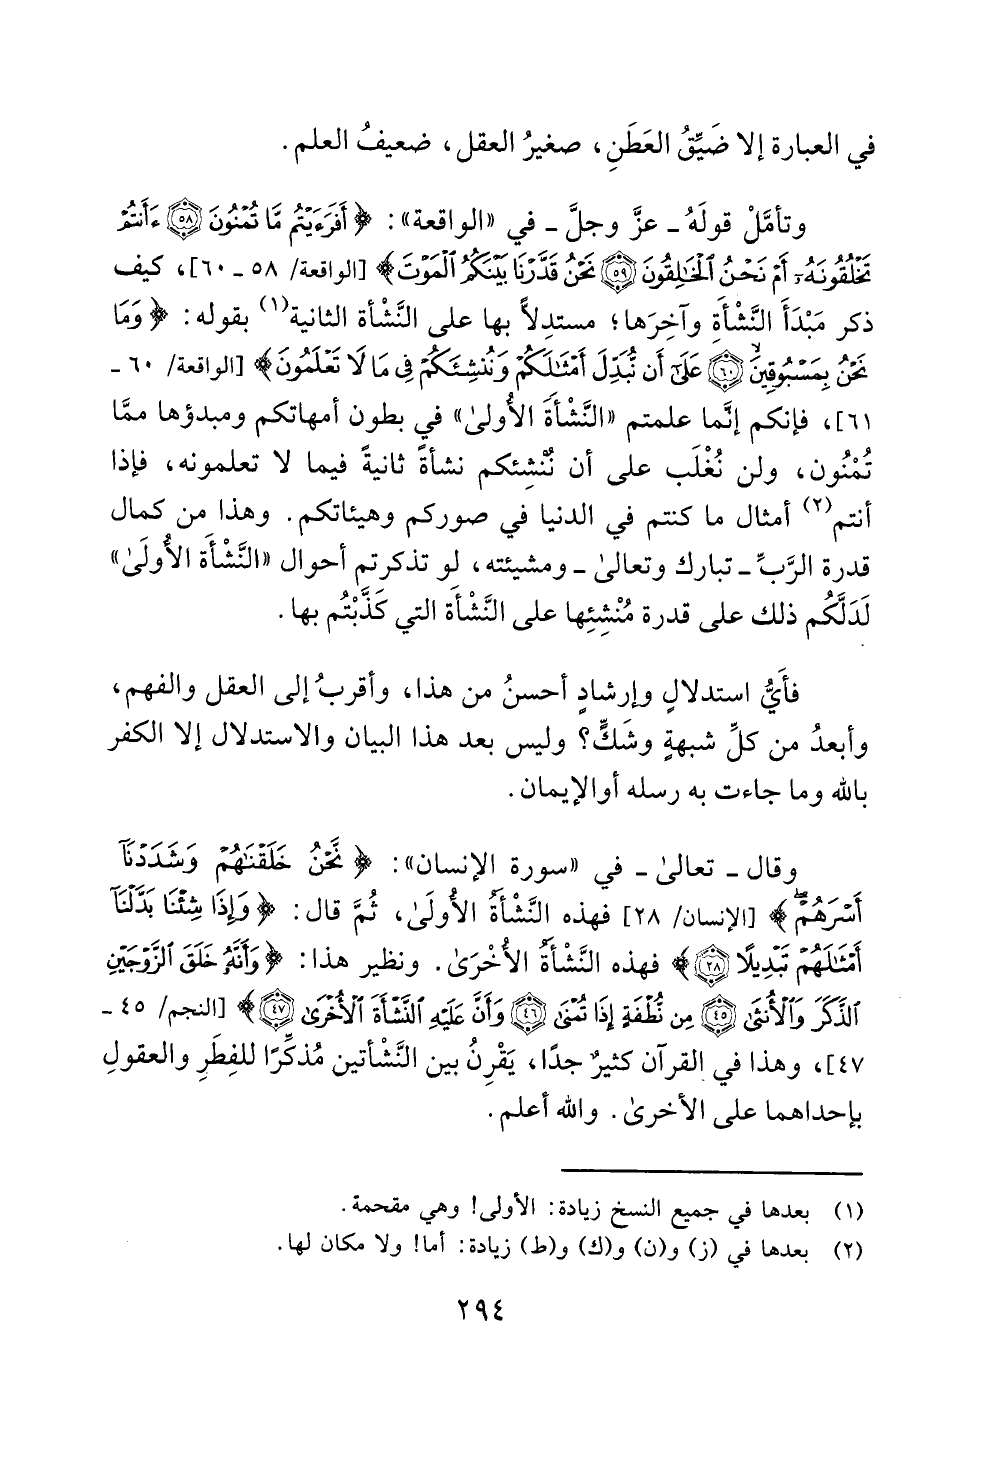 في العبارة إلا ضَيِّقُ العَطَنِ، صغيرُ العقل، ضعيفُ العلم.
وتأمَّلْ قولَهُ - عزَّ وجلَّ - في «الواقعة»: ﴿أَفَرَءَيْتُم مَّا تُمْنُونَ ٥٨ ءَأَنتُمْ
تَخْلُقُونَهُۥٓ أَمْ نَحْنُ ٱلْخَٰلِقُونَ ٥٩ نَحْنُ قَدَّرْنَا بَيْنَكُمُ ٱلْمَوْتَ﴾ [الواقعة/ ٥٨ - ٦٠]، كيف
ذكر مَبْدَأَ النَّشْأَةِ وآخِرَها؛ مستدِلاًّ بها على النَّشْأة الثانية(١) بقوله: ﴿وَمَا
نَحْنُ بِمَسْبُوقِينَ ٦٠ عَلَىٰٓ أَن نُّبَدِّلَ أَمْثَٰلَكُمْ وَنُنشِئَكُمْ فِى مَا لَا تَعْلَمُونَ﴾ [الواقعة/ ٦٠ -
٦١]، فإنكم إنَّما علمتم «النَّشْأَةَ الأُولىٰ» في بطون أمهاتكم ومبدؤها ممَّا
تُمْنُون، ولن نُغْلَب على أن نُنْشِئكم نشأةً ثانيةً فيما لا تعلمونه، فإذا
أنتم(٢) أمثال ما كنتم في الدنيا في صوركم وهيئاتكم. وهذا من كمال
قدرة الرَّبِّ - تبارك وتعالىٰ - ومشيئته، لو تذكرتم أحوال «النَّشْأَة الأُولَىٰ»
لَدَلَّكُم ذلك على قدرة مُنْشِئِها على النَّشْأَة التي كَذَّبْتُم بها.
فأَيُّ استدلالٍ وإرشادٍ أحسنُ من هذا، وأقربُ إلى العقل والفهم،
وأبعدُ من كلِّ شبهةٍ وشَكٍّ؟ وليس بعد هذا البيان والاستدلال إلا الكفر
بالله وما جاءت به رسله أوالإيمان.
وقال - تعالىٰ - في «سورة الإنسان»: ﴿نَّحْنُ خَلَقْنَٰهُمْ وَشَدَدْنَآ
أَسْرَهُمْ﴾ [الإنسان/ ٢٨] فهذه النَّشْأَةُ الأُولَىٰ، ثُمَّ قال: ﴿وَإِذَا شِئْنَا بَدَّلْنَآ
أَمْثَٰلَهُمْ تَبْدِيلًا ٢٨﴾ فهذه النَّشْأَةُ الأُخْرَىٰ. ونظير هذا: ﴿وَأَنَّهُۥ خَلَقَ ٱلزَّوْجَيْنِ
ٱلذَّكَرَ وَٱلْأُنثَىٰ ٤٥ مِن نُّطْفَةٍ إِذَا تُمْنَىٰ ٤٦ وَأَنَّ عَلَيْهِ ٱلنَّشْأَةَ ٱلْأُخْرَىٰ ٤٧﴾ [النجم/ ٤٥ -
٤٧]، وهذا في القرآن كثيرٌ جدًا، يَقْرِنُ بين النَّشْأتين مُذكِّرًا للفِطَرِ والعقولِ
بإحداهما على الأخرىٰ. والله أعلم.
(١) بعدها في جميع النسخ زيادة: الأولى! وهي مقحمة.
(٢) بعدها في (ز) و(ن) و(ك) و(ط) زيادة: أما! ولا مكان لها.
٢٩٤